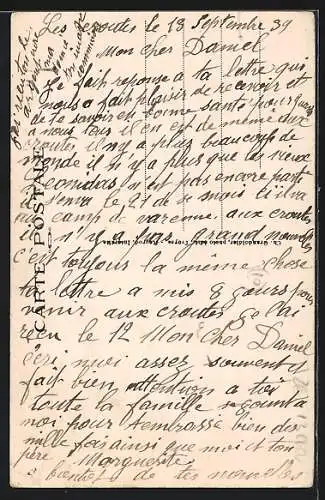 Les croutes le 13 Septembre 39
Mon Cher Daniel
Je fait reponse a ta lettre qui
nous a fait plaisir de recevoir et
de te savoir en bonne santé pour
a nous tous il en est de meme aux
croutes il n'y a plus beaucoup de
monde il n'y a plus que les vieux
n'est pas encore partit
il sera le 21 de se mois Ci il va
au camp de varenne aux croutes
il n'y a pas grand nouvelles
c'est toujours la même chose
ta lettre a mis 8 jours pour
venir aux croutes Je l'ai
reçu le 12 Mon Cher Daniel
écri moi assez souvent et
fait bien attention a toi
toute la famille se joint a
moi pour t'embrasse bien des
mille fois ainsi que moi et ton
père Marguerite
a bientot de tes nouvelles
CARTE POSTALE